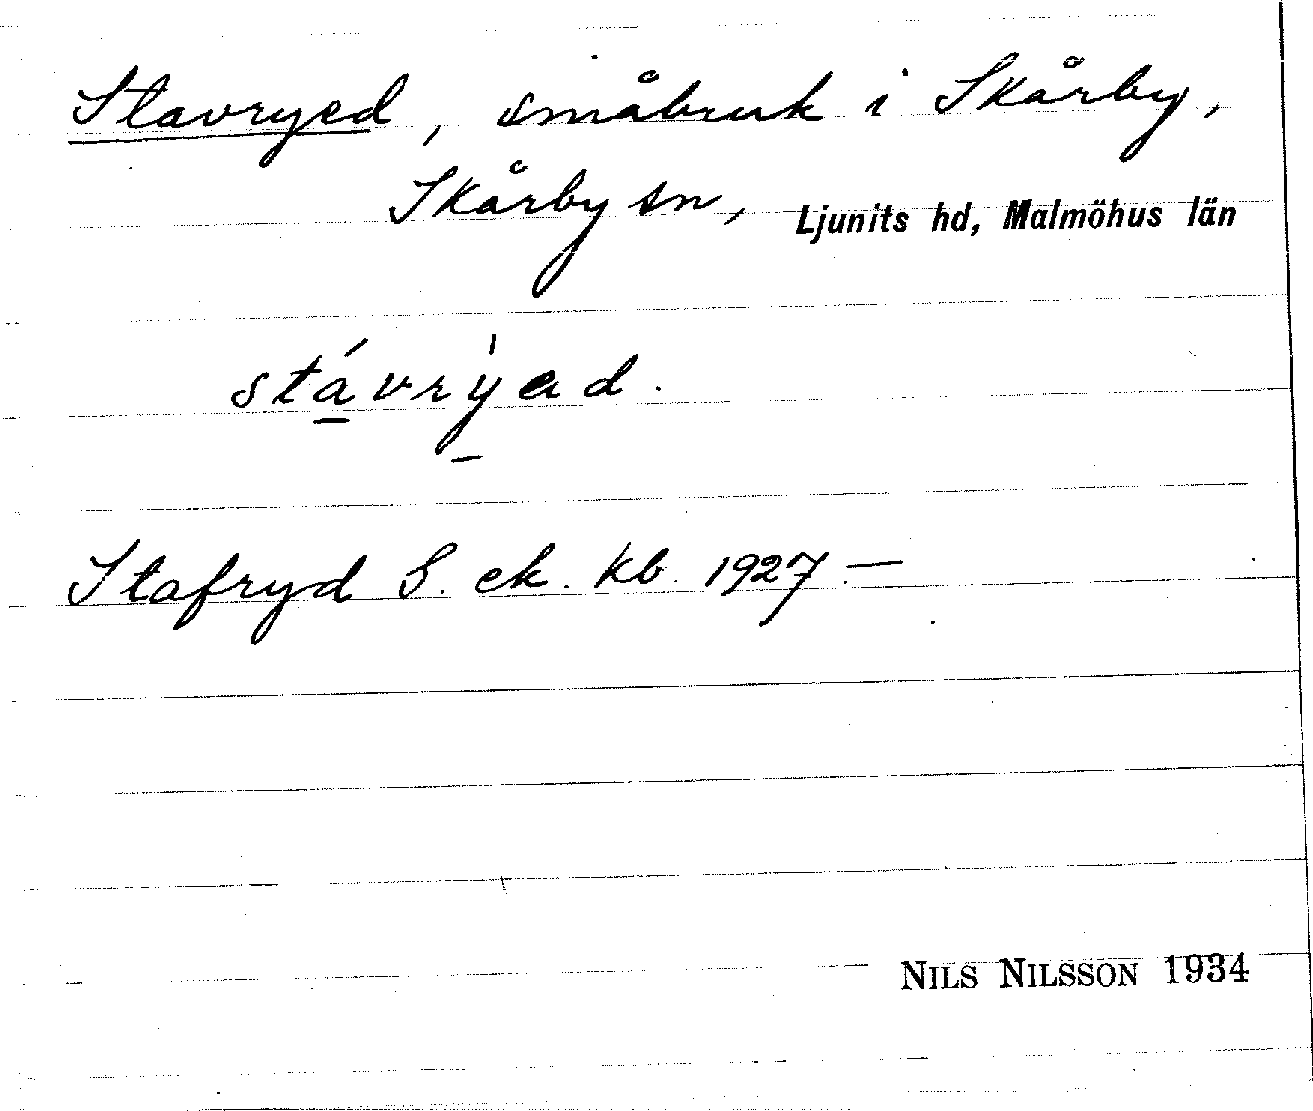 Stavryed, småbruk i Skårby,
Skårby sn, Ljunits hd, Malmöhus län
stávrýad.
Stafryd S. ek. kb. 1927.—
NILS NILSSON 1934